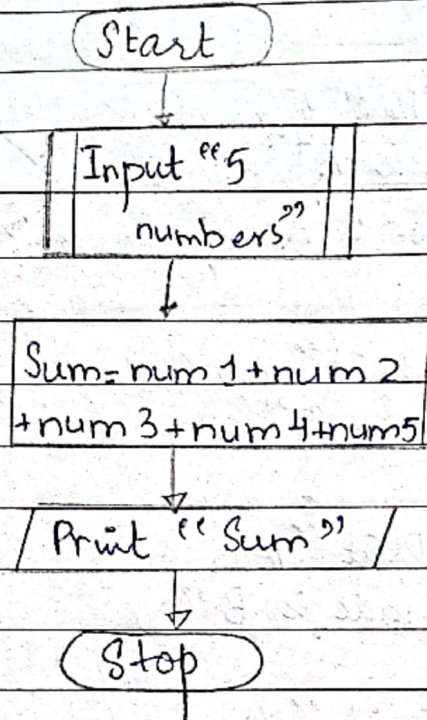 Start
Input "5
numbers"
Sum = num 1 + num 2
+ num 3 + num 4 + num5
Print "Sum"
Stop